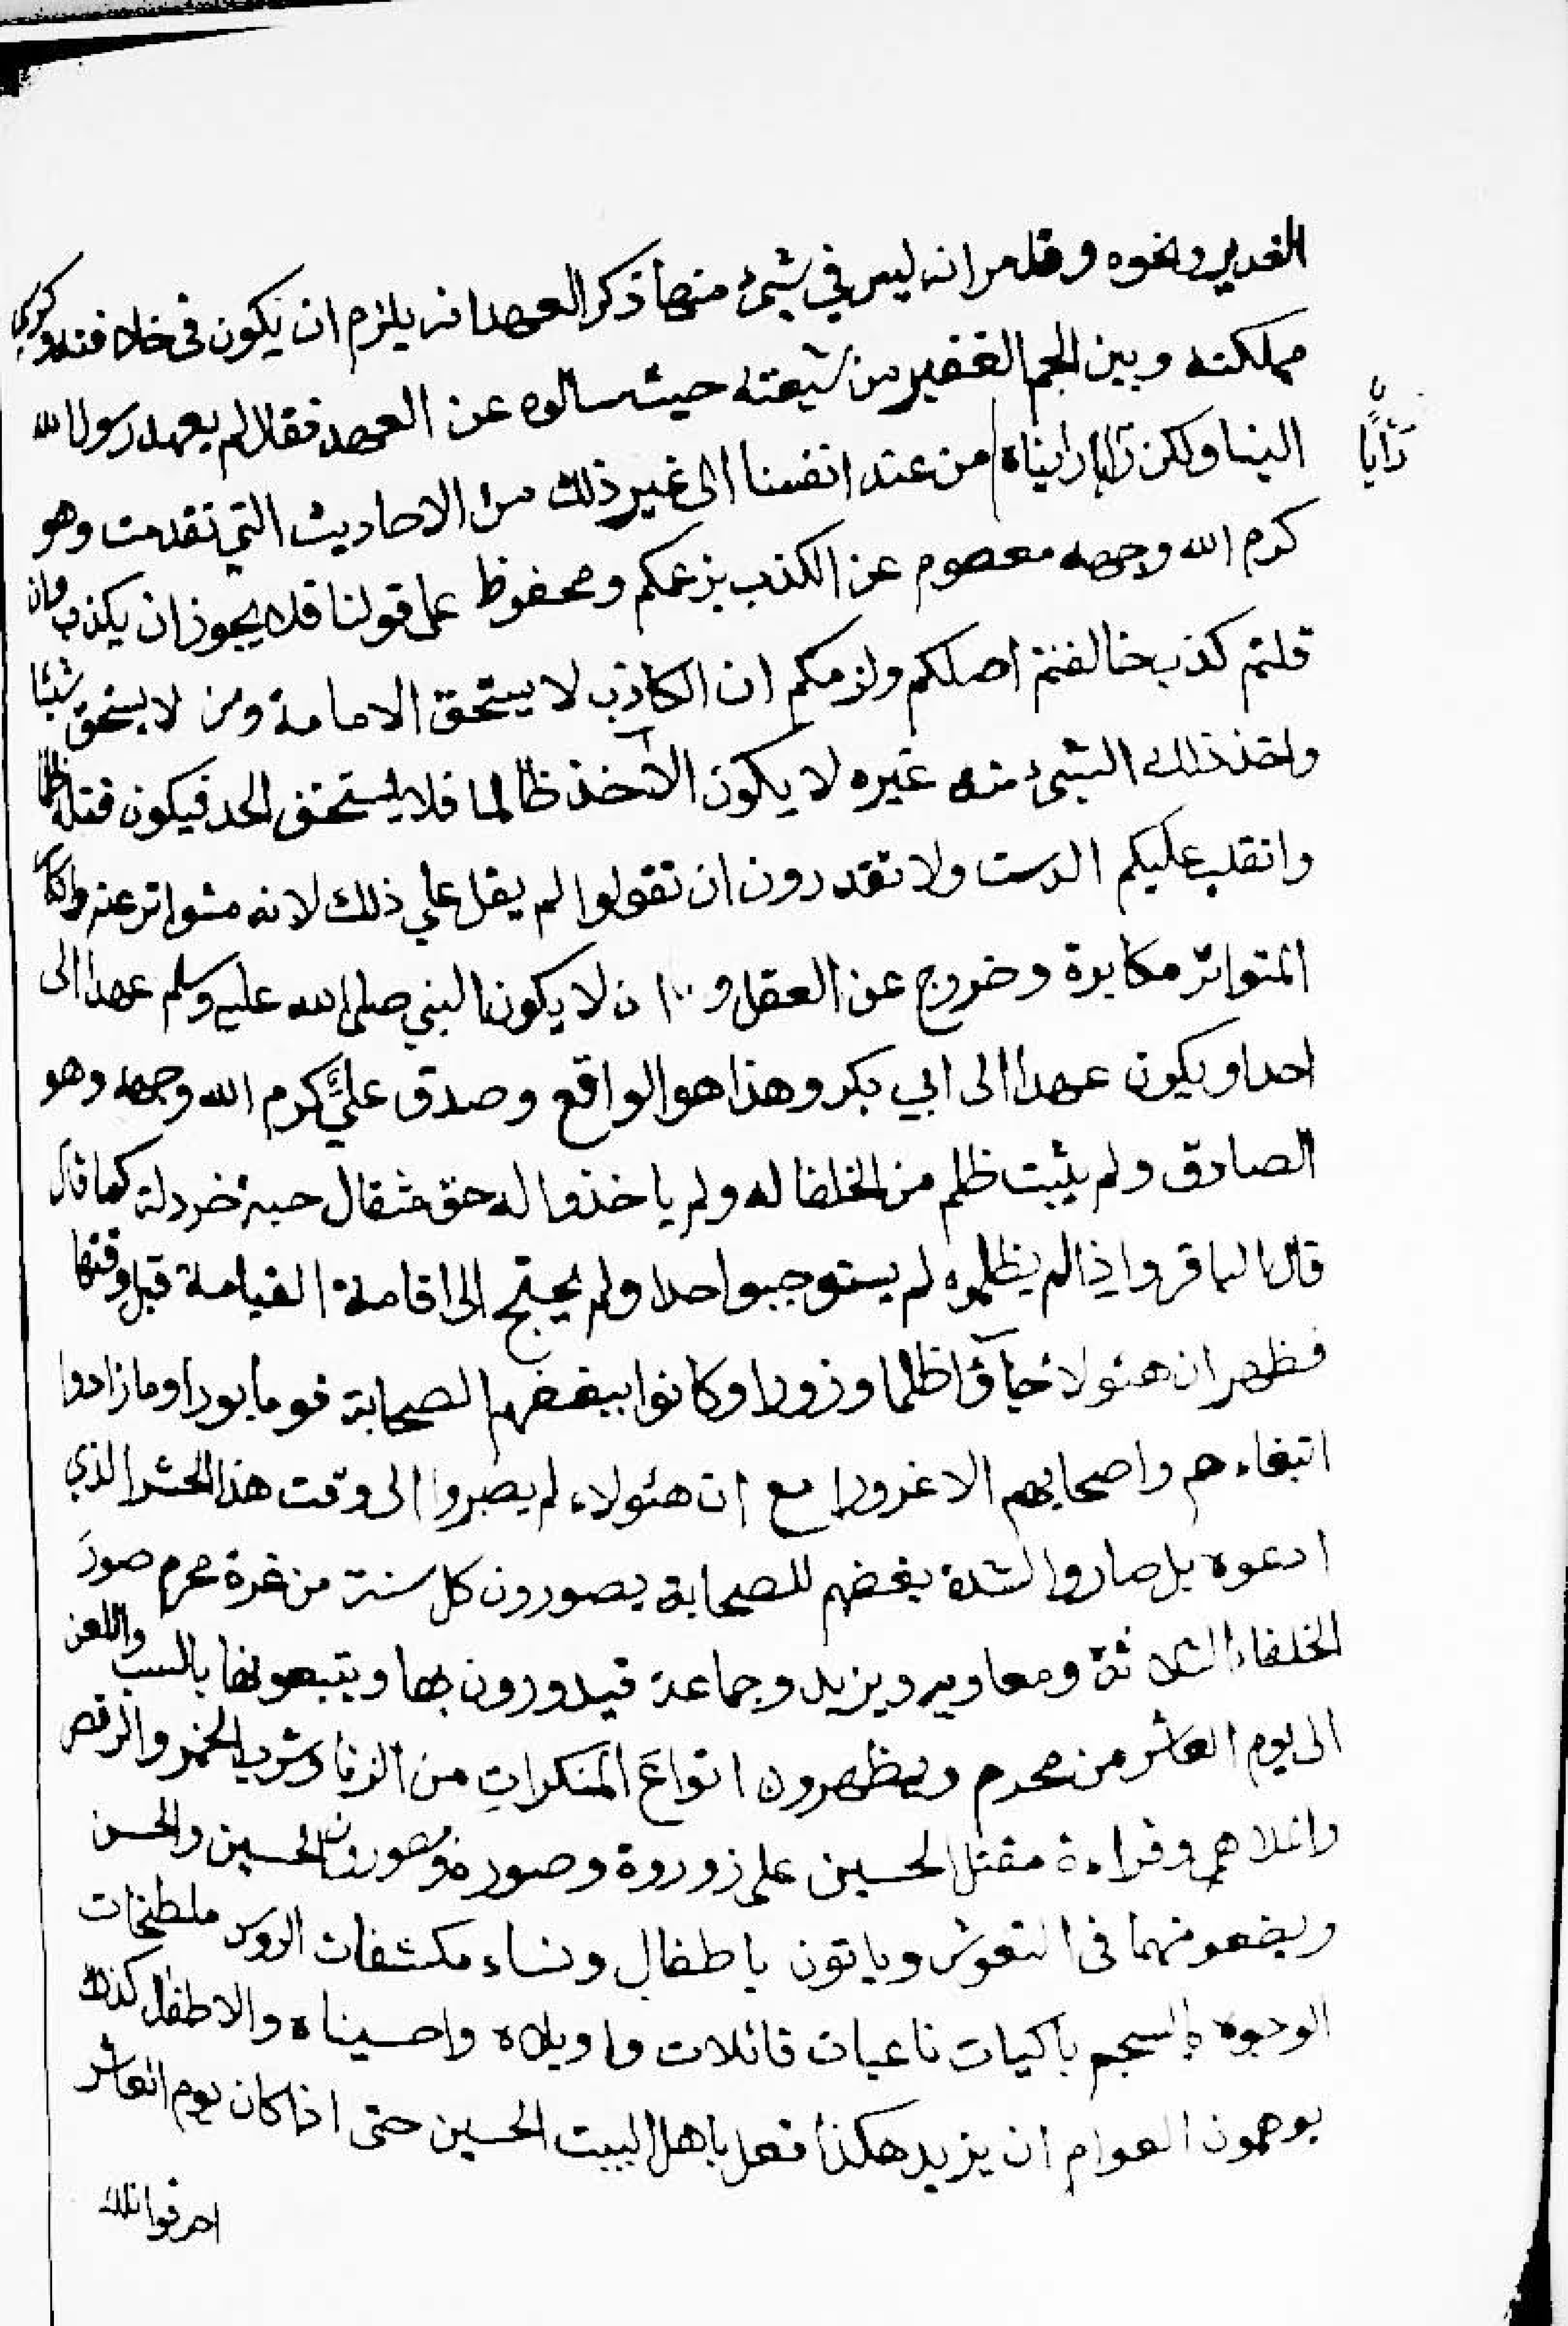 الغدير ونحوه وقد مر انه ليس في شيئ منها ذكر العهد انه يلزم ان يكون في خلافته وكرسي
مملكته وبين الجم الغفير من شيعته حيث سالوه عن العهد فقال لم يعهد رسول الله
الينا ولكن رايا رايناه من عند انفسنا الى غير ذلك من الاحاديث التي تقدمت وهو
رأيًا
كرم الله وجهه معصوم عن الكذب بزعمكم ومحفوظ على قولنا فلا يجوز ان يكذب وان
قلتم كذب خالفتم اصلكم ولزمكم ان الكاذب لا يستحق الامامة ومن لا يستحق شيئا
واخذ ذلك الشيئ منه غيره لا يكون الآخذ ظالما فلا يستحق الحد فيكون قتله ظلما
وانقلب عليكم الدست ولا تقدرون ان تقولوا لم يقل علي ذلك لانه متواتر عنه وانكار
المتواتر مكابرة وخروج عن العقل و ان لا يكون النبي صلى الله عليه وسلم عهدا الى
احد او يكون عهدا الى ابي بكر وهذا هو الواقع وصدق عليٌّ كرم الله وجهه وهو
الصادق ولم يثبت ظلم من الخلفا له ولم ياخذوا له حق مثقال حبة خردلة كما قال
قال الباقر واذا لم يظلموه لم يستوجبوا حدا ولم يحتج الى اقامة القيامة قبل وقتها
فظهر ان هئولا جاؤا ظلما وزورا وكانوا ببغضهم الصحابة قوما بورا وما زادوا
اتبغاءهم واصحابهم الا غرورا مع ان هئولاء لم يصبروا الى وقت هذا الحشر الذي
ادعوه بل صاروا لشدة بغضهم للصحابة يصورون كل سنة من غرة محرم صورَ
الخلفاء الثلاثة ومعاويه ويزيد وجماعة فيدورون بها ويتبعونها بالسب واللعن
الى يوم العاشر من محرم ويظهرون انواعَ المنكراتِ من الزنا وشرب الخمر والرقص
وقراءة مقتل الحسين على وصورة ويصورون الحسين والحسن
ويضعونهما في النعوش وياتون باطفال ونساء مكشفات الروس ملطخات
الوجوه باكيات ناعيات قائلات واويلاه واحسيناه والاطفال كذلك
يوهمون العوام ان يزيد هكذا فعل باهل البيت الحسين حتى اذا كان يوم العاشر
احرقوا تلك